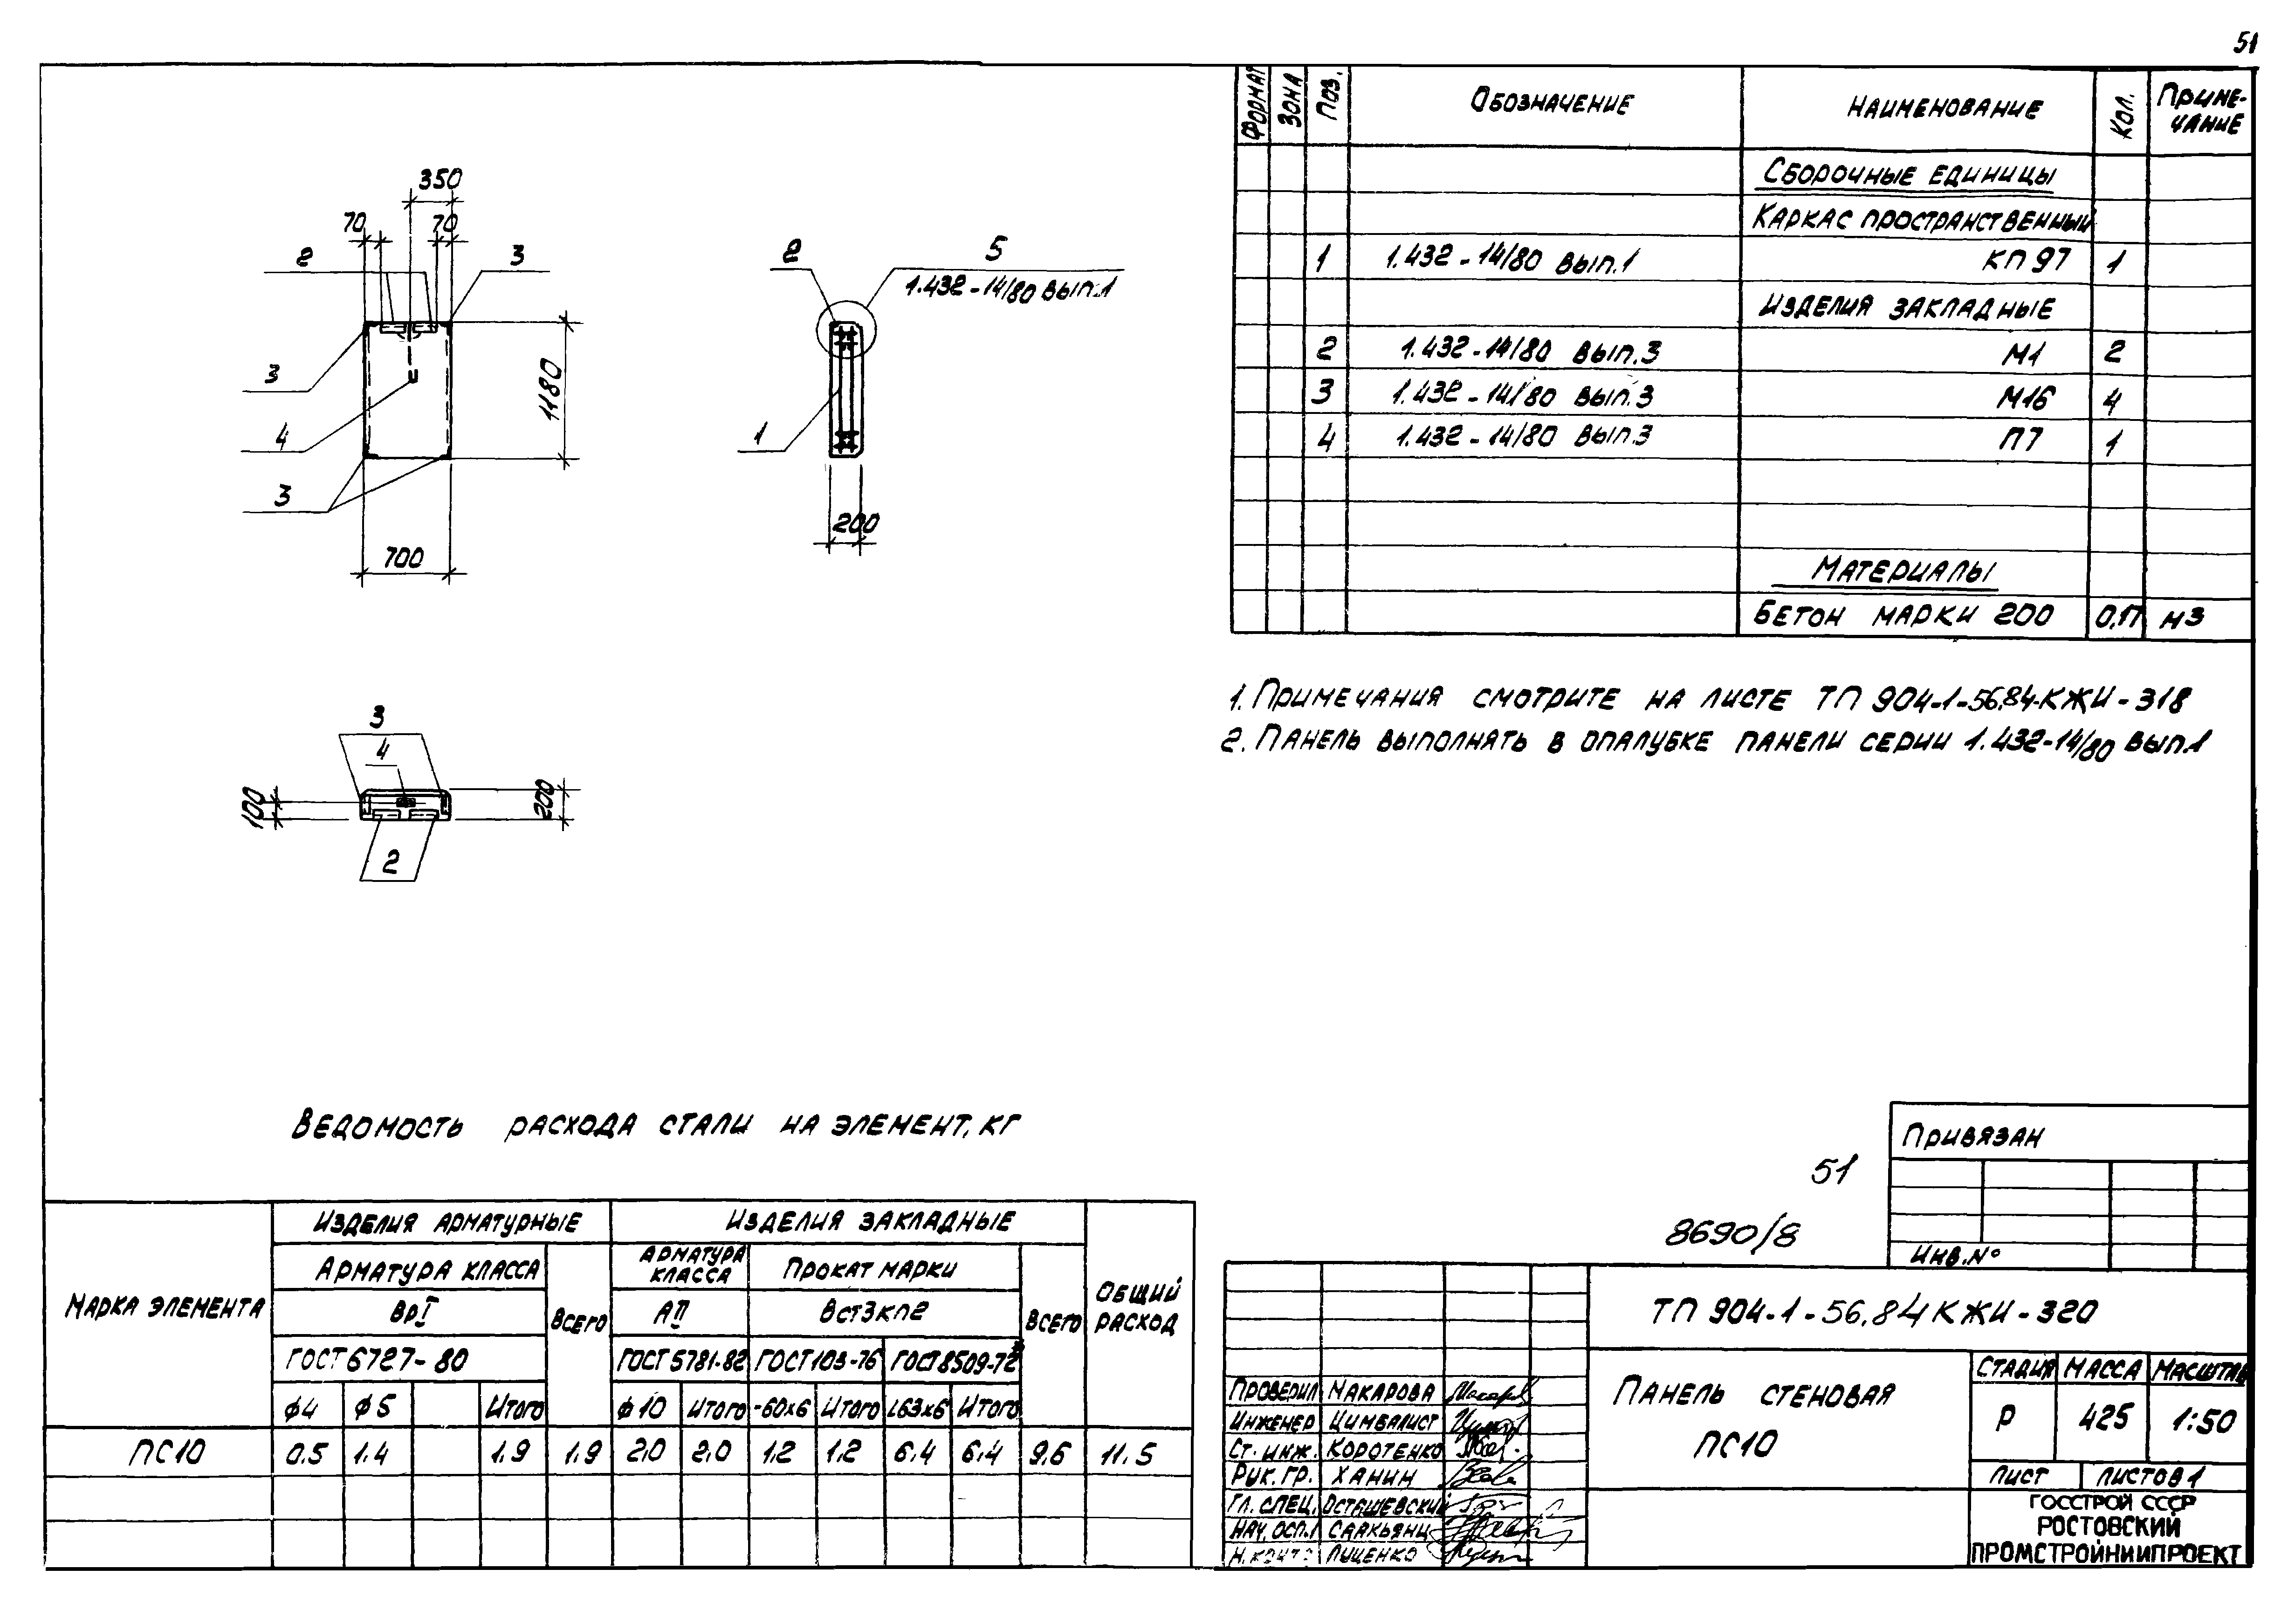 51
350
70
70
2
3
3
1180
4
3
700
2
5
1.432-14/80 вып.1
1
200
3
4
100
200
2
Формат Зона Поз. Обозначение Наименование Кол. Приме-
чание
Сборочные единицы
Каркас пространственный
1 1.432-14/80 вып.1 КП97 1
Изделия закладные
2 1.432-14/80 вып.3 М1 2
3 1.432-14/80 вып.3 М16 4
4 1.432-14/80 вып.3 П7 1
Материалы
Бетон марки 200 0,17 м3
1. Примечания смотрите на листе ТП 904-1-56.84-КЖИ-318
2. Панель выполнять в опалубке панели серии 1.432-14/80 вып.1
Ведомость расхода стали на элемент, кг
Марка элемента
Изделия арматурные
Изделия закладные
Общий
расход
Арматура класса
Всего
Арматура
класса
Прокат марки
Всего
ВрI
АII
Вст3кп2
ГОСТ 6727-80
ГОСТ 5781-82
ГОСТ 103-76
ГОСТ 8509-72
ф4 ф5 Итого ф10 Итого -60х6 Итого L63х6 Итого
ПС10 0.5 1.4 1.9 1.9 2,0 2,0 1,2 1,2 6,4 6,4 9,6 11,5
51
8690/8
Привязан
Инв.N°
ТП 904-1-56.84 КЖИ-320
Панель стеновая
ПС10
Стадия Масса Масштаб
Р 425 1:50
Лист Листов 1
ГОССТРОЙ СССР
РОСТОВСКИЙ
ПРОМСТРОЙНИИПРОЕКТ
Проверил Макарова
Инженер Цимбалист
Ст. инж. Коротенко
Рук. гр. Ханин
Гл. спец. Осташевский
Нач. осп.1 Саакьянц
Н. контр Луценко